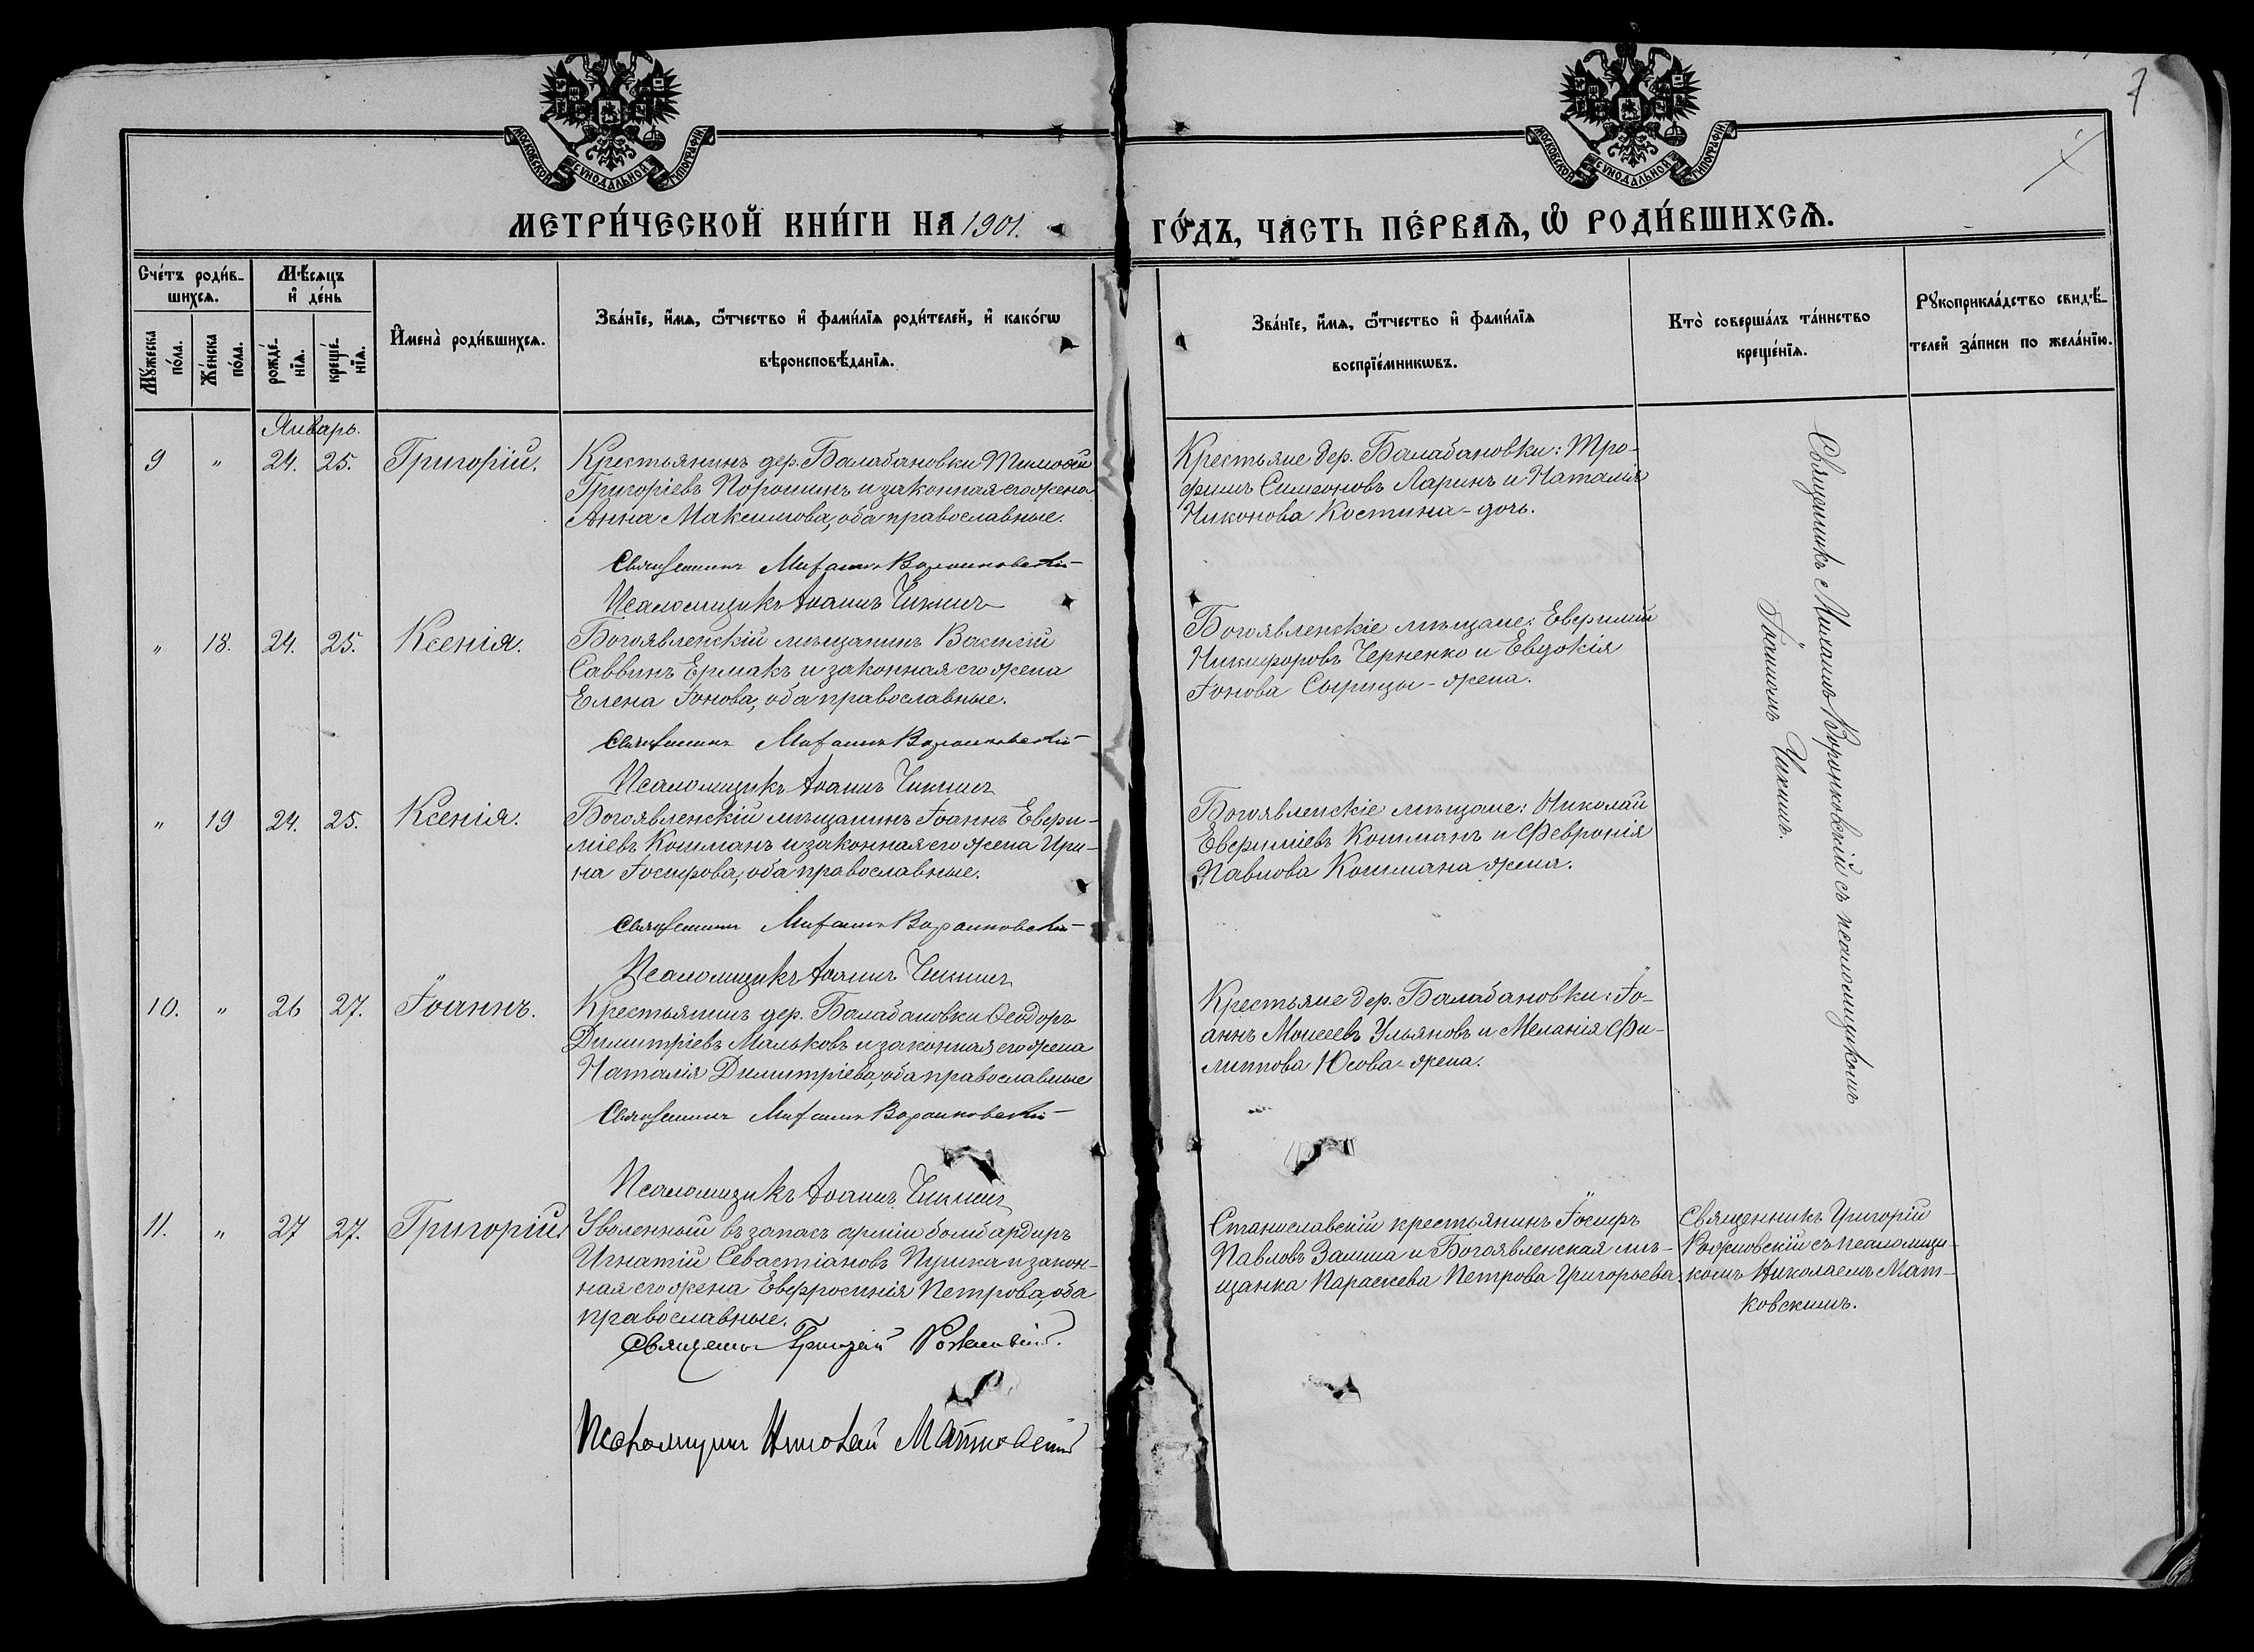 7
МОСКОВСКОЙ СѴНОДАЛЬНОЙ ТИПОГРАФІИ
МОСКОВСКОЙ СѴНОДАЛЬНОЙ ТИПОГРАФІИ
МЕТРИ́ЧЕСКОЙ КНИ́ГИ НА 1901.
ГО́ДЪ, ЧА́СТЬ ПЕ́РВАѦ, Ѡ РОДИ́ВШИХСѦ.
Сче́тъ роди́в-
шихсѧ.
Мѣ́сѧцъ
и де́нь
Мꙋ́жеска
по́ла.
Же́нска
по́ла.
рожде́-
нїѧ.
креще́-
нїѧ.
И҆мена̀ роди́вшихсѧ.
Зва́нїе, и҆́мѧ, ѻ҆́тчество и҆ фами́лїѧ роди́телей, и҆ како́гѡ
вѣроисповѣ́данїѧ.
Зва́нїе, и҆́мѧ, ѻ҆́тчество и҆ фами́лїѧ
воспрїе́мникѡвъ.
Кто̀ соверша́лъ та́инство
креще́нїѧ.
Рꙋкоприкла́дство свидѣ́-
телей за́писи по жела́нїю.
Январь.
9 " 24. 25. Григорій.
Крестьянинъ дер. Балабановки Тимоѳей
Григоріевъ Порошинъ и законная его жена
Анна Максимова, оба православные.
Священникъ Михаилъ Воронковскій
Псаломщикъ Іоаннъ Чикинъ
Крестьяне дер. Балабановки: Тро-
фимъ Симеоновъ Ларинъ и Наталія
Никонова Костина - дочь.
Священникъ Михаилъ Воронковскій съ псаломщикомъ
Іоанномъ Чикинъ.
" 18. 24. 25. Ксенія.
Богоявленскій мѣщанинъ Василій
Саввинъ Ермакъ и законная его жена
Елена Іонова, оба православные.
Священникъ Михаилъ Воронковскій
Псаломщикъ Іоаннъ Чикинъ
Богоявленскіе мѣщане: Евфимій
Никифоровъ Черненко и Евдокія
Іонова Сырицы - жена.
" 19 24. 25. Ксенія.
Богоявленскій мѣщанинъ Іоаннъ Евфи-
міевъ Кошманъ и законная его жена Ири-
на Іосифова, оба православные.
Священникъ Михаилъ Воронковскій
Псаломщикъ Іоаннъ Чикинъ
Богоявленскіе мѣщане: Николай
Евфиміевъ Кошманъ и Февронія
Павлова Кошмана жена.
10. " 26 27. Іоаннъ.
Крестьянинъ дер. Балабановки Ѳеодоръ
Димитріевъ Мальковъ и законная его жена
Наталія Димитріева, оба православные
Священникъ Михаилъ Воронковскій
Псаломщикъ Іоаннъ Чикинъ
Крестьяне дер. Балабановки: Іо-
аннъ Моисеевъ Ульяновъ и Меланія Фи-
липпова Юсова - жена.
11. " 27 27. Григорій
Уволенный въ запасъ арміи бомбардиръ
Игнатій Севастіановъ Пушка и закон-
ная его жена Евфросинія Петрова, оба
православные.
Священникъ Григорій
Псаломщикъ Николай Матковскій
Станиславскій крестьянинъ Іосифъ
Павловъ и Богоявленская мѣ-
щанка Параскева Петрова Григорьева.
Священникъ Григорій
съ псаломщи-
комъ Николаемъ Мат-
ковскимъ.